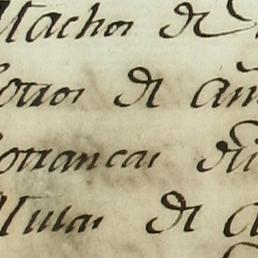 Machos de
otros de añ
otrancas de
Mulas de a